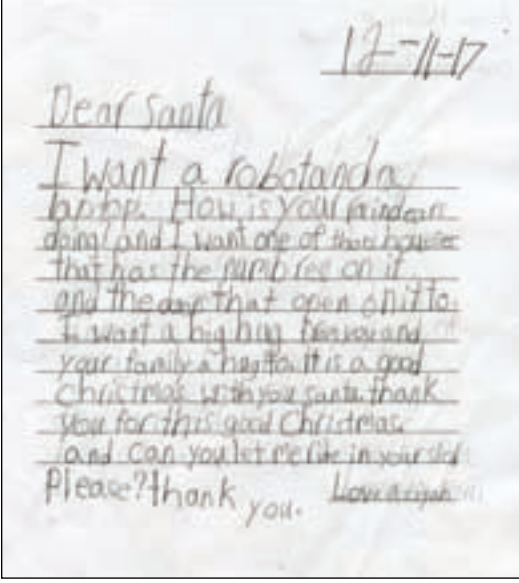 12-11-17
Dear Santa
I want a robot and a
laptop. How is your raindears
doing! and I want one of thos house
that has the numb on it
and the door that open onit to.
I want a big hug you and
your family a hug to. It is a good
Christmas with you santa. thank
you for this good Christmas.
and can you let me ride in your sled
Please? thank you.
Love